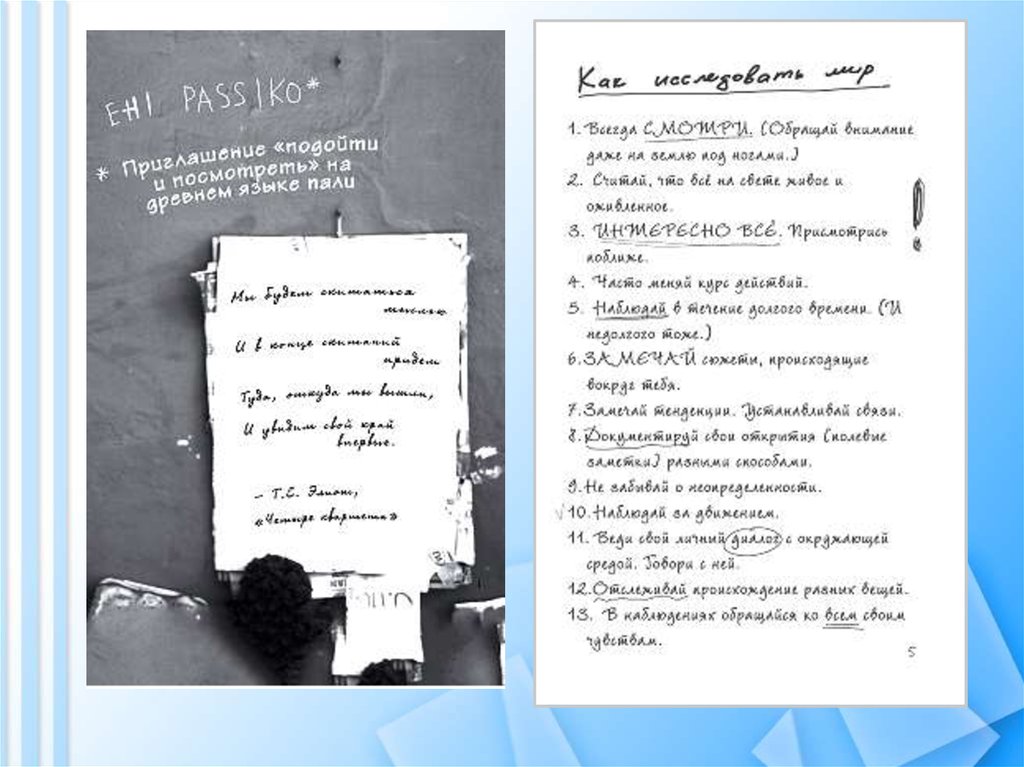 EHI PASSIKO*
* Приглашение «подойти
и посмотреть» на
древнем языке пали
Мы будем скитаться
мыслью
И в конце скитаний
придем
Туда, откуда мы вышли,
И увидим свой край
впервые.
– Т.С. Элиот,
«Четыре квартета»
Как исследовать мир
1. Всегда СМОТРИ. (Обращай внимание
даже на землю под ногами.)
2. Считай, что всё на свете живое и
оживленное.
3. ИНТЕРЕСНО ВСЁ. Присмотрись
поближе.
4. Часто меняй курс действий.
5. Наблюдай в течение долгого времени. (И
недолгого тоже.)
6. ЗАМЕЧАЙ сюжеты, происходящие
вокруг тебя.
7. Замечай тенденции. Устанавливай связи.
8. Документируй свои открытия (полевые
заметки) разными способами.
9. Не забывай о неопределенности.
10. Наблюдай за движением.
11. Веди свой личный диалог с окружающей
средой. Говори с ней.
12. Отслеживай происхождение разных вещей.
13. В наблюдениях обращайся ко всем своим
чувствам.
5